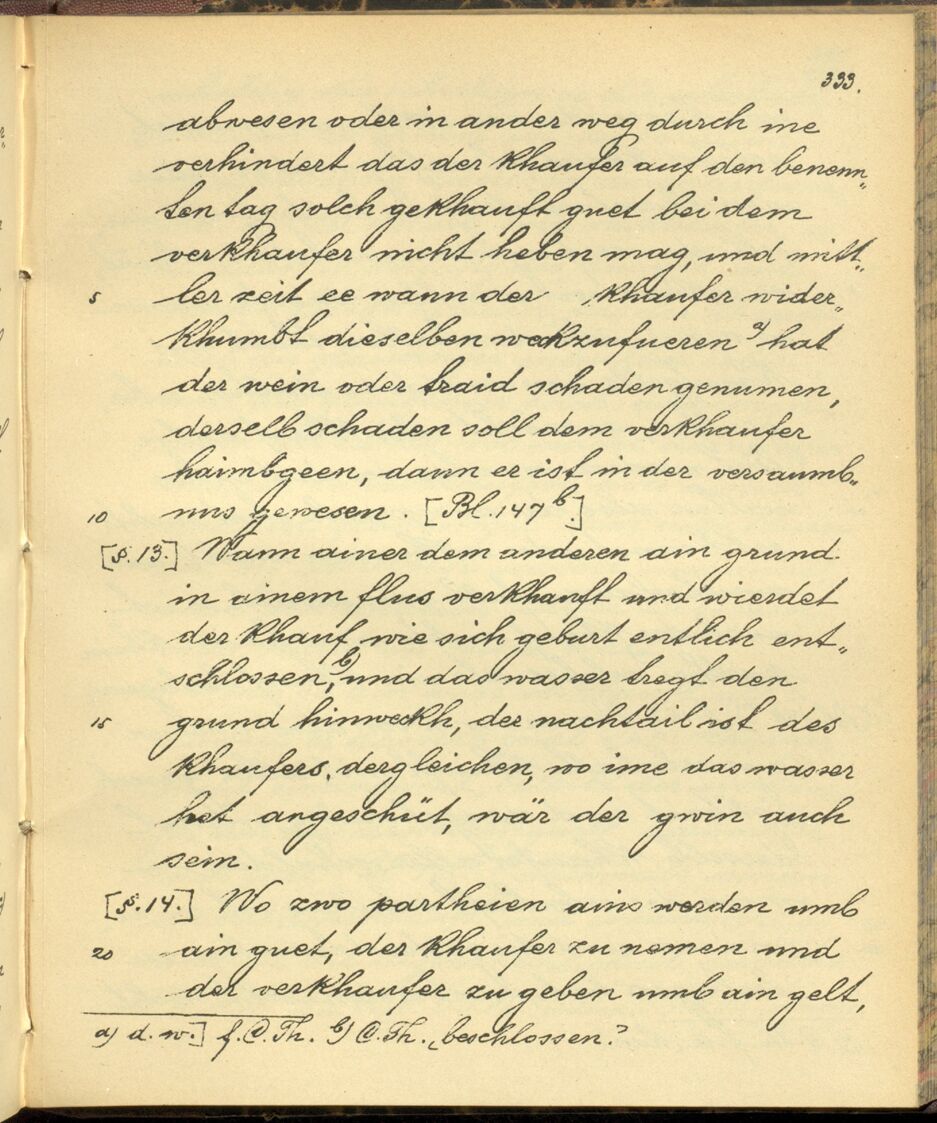 333.
abwesen oder in ander weg durch ine
verhindert das der khaufer auf den benenn„
ten tag solch gekhauft guet bei dem
verkhaufer nicht heben mag, und mitt„
5 ler zeit ee wann der khaufer wider„
khumbt dieselben weckzufueren a) hat
der wein oder traid schaden genumen,
derselb schaden soll dem verkhaufer
haimbgeen, dann er ist in der versaumb„
10 nus gewesen. [Bl. 147 b.]
[§. 13.] Wann ainer dem anderen ain grund
in ainem flus verkhauft und wierdet
der khauf, wie sich geburt entlich ent„
schlossen, b) und das wasser tregt den
15 grund hinweckh, der nachtail ist des
khaufers, dergleichen, wo ime das wasser
het angeschüt, wär der gwin auch
sein.
[§. 14.] Wo zwo partheien ains werden umb
20 ain guet, der khaufer zu nemen und
der verkhaufer zu geben umb ain gelt,
a) d. w.] f. C. Th. b) C. Th. „beschlossen.“